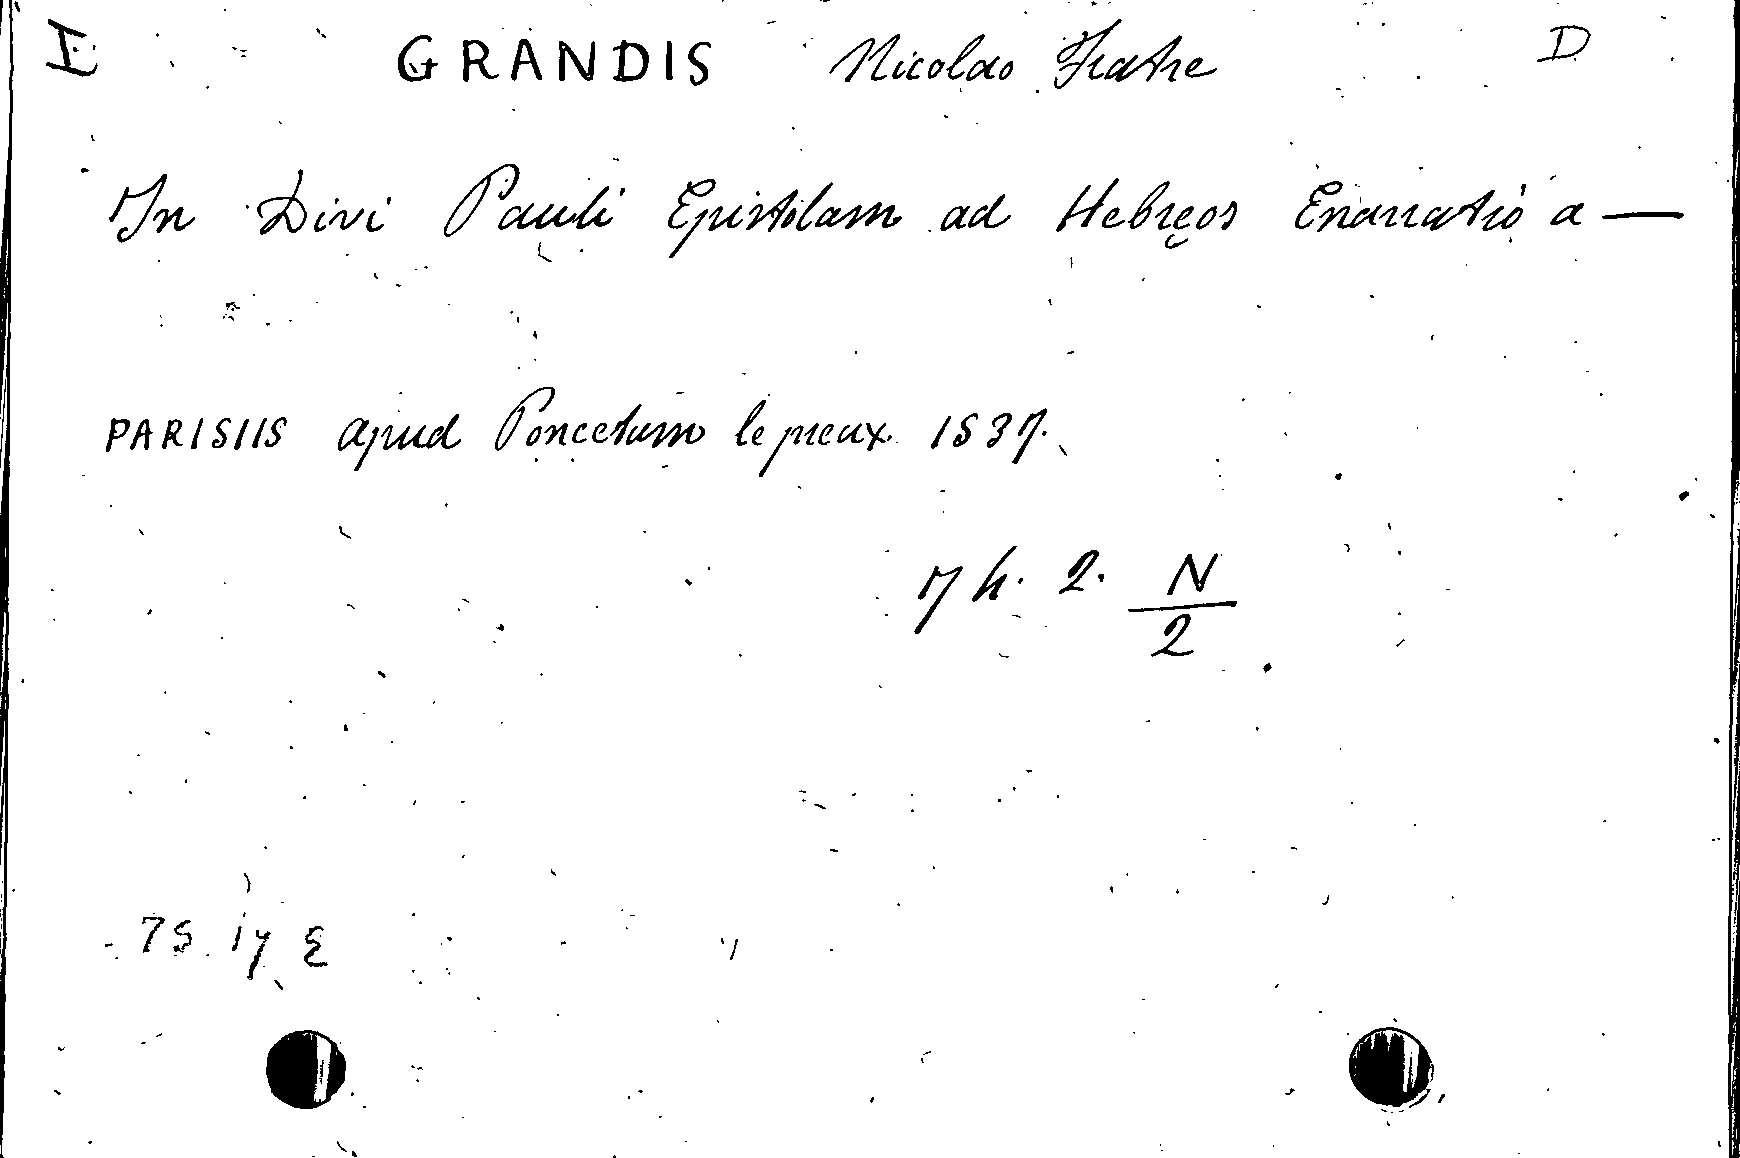 I GRANDIS Nicolao Fratre D
In Divi Pauli Epistolam ad Hebręos Enarratio a —
PARISIIS apud Poncetum le preux 1537.
Th. 2. N
2
75 17 E